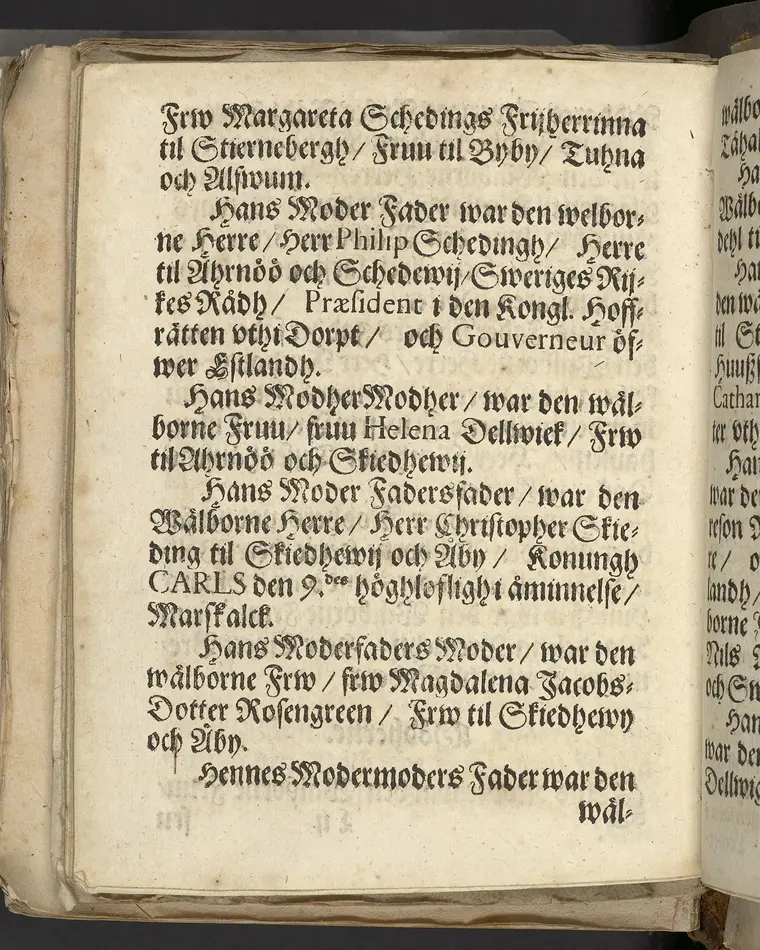 Frw Margareta Schedings Frijherrinna
til Stiernebergh/ Fruu til Byby/ Tuhna
och Alswum.
Hans Moder Fader war den welbor⸗
ne Herre/ Herr Philip Schedingh/ Herre
til Åhrnöö och Schedewij/ Sweriges Rij⸗
kes Rådh/ Præsident i den Kongl. Hoff⸗
rätten vthi Dorpt/ och Gouverneur öf⸗
wer Estlandh.
Hans Modher Modher/ war den wäl⸗
borne Fruu/ fruu Helena Dellwiek/ Frw
til Åhrnöö och Skiedhewij.
Hans Moder Fadersfader/ war den
Wälborne Herre/ Herr Christopher Skie⸗
ding til Skiedhewij och Åby/ Konungh
CARLS den 9.des höghlofligh i åminnelse/
Marskalck.
Hans Moderfaders Moder/ war den
wälborne Frw/ frw Magdalena Jacobs⸗
Dotter Rosengreen/ Frw til Skiedhewy
och Åby.
Hennes Modermoders Fader war den
wäl⸗
wälbo
Håns
den wä
til St
Cathar
ter vth
Han
war de
landh/
borne
Nils
och Sw
Han
war der
Dellwig